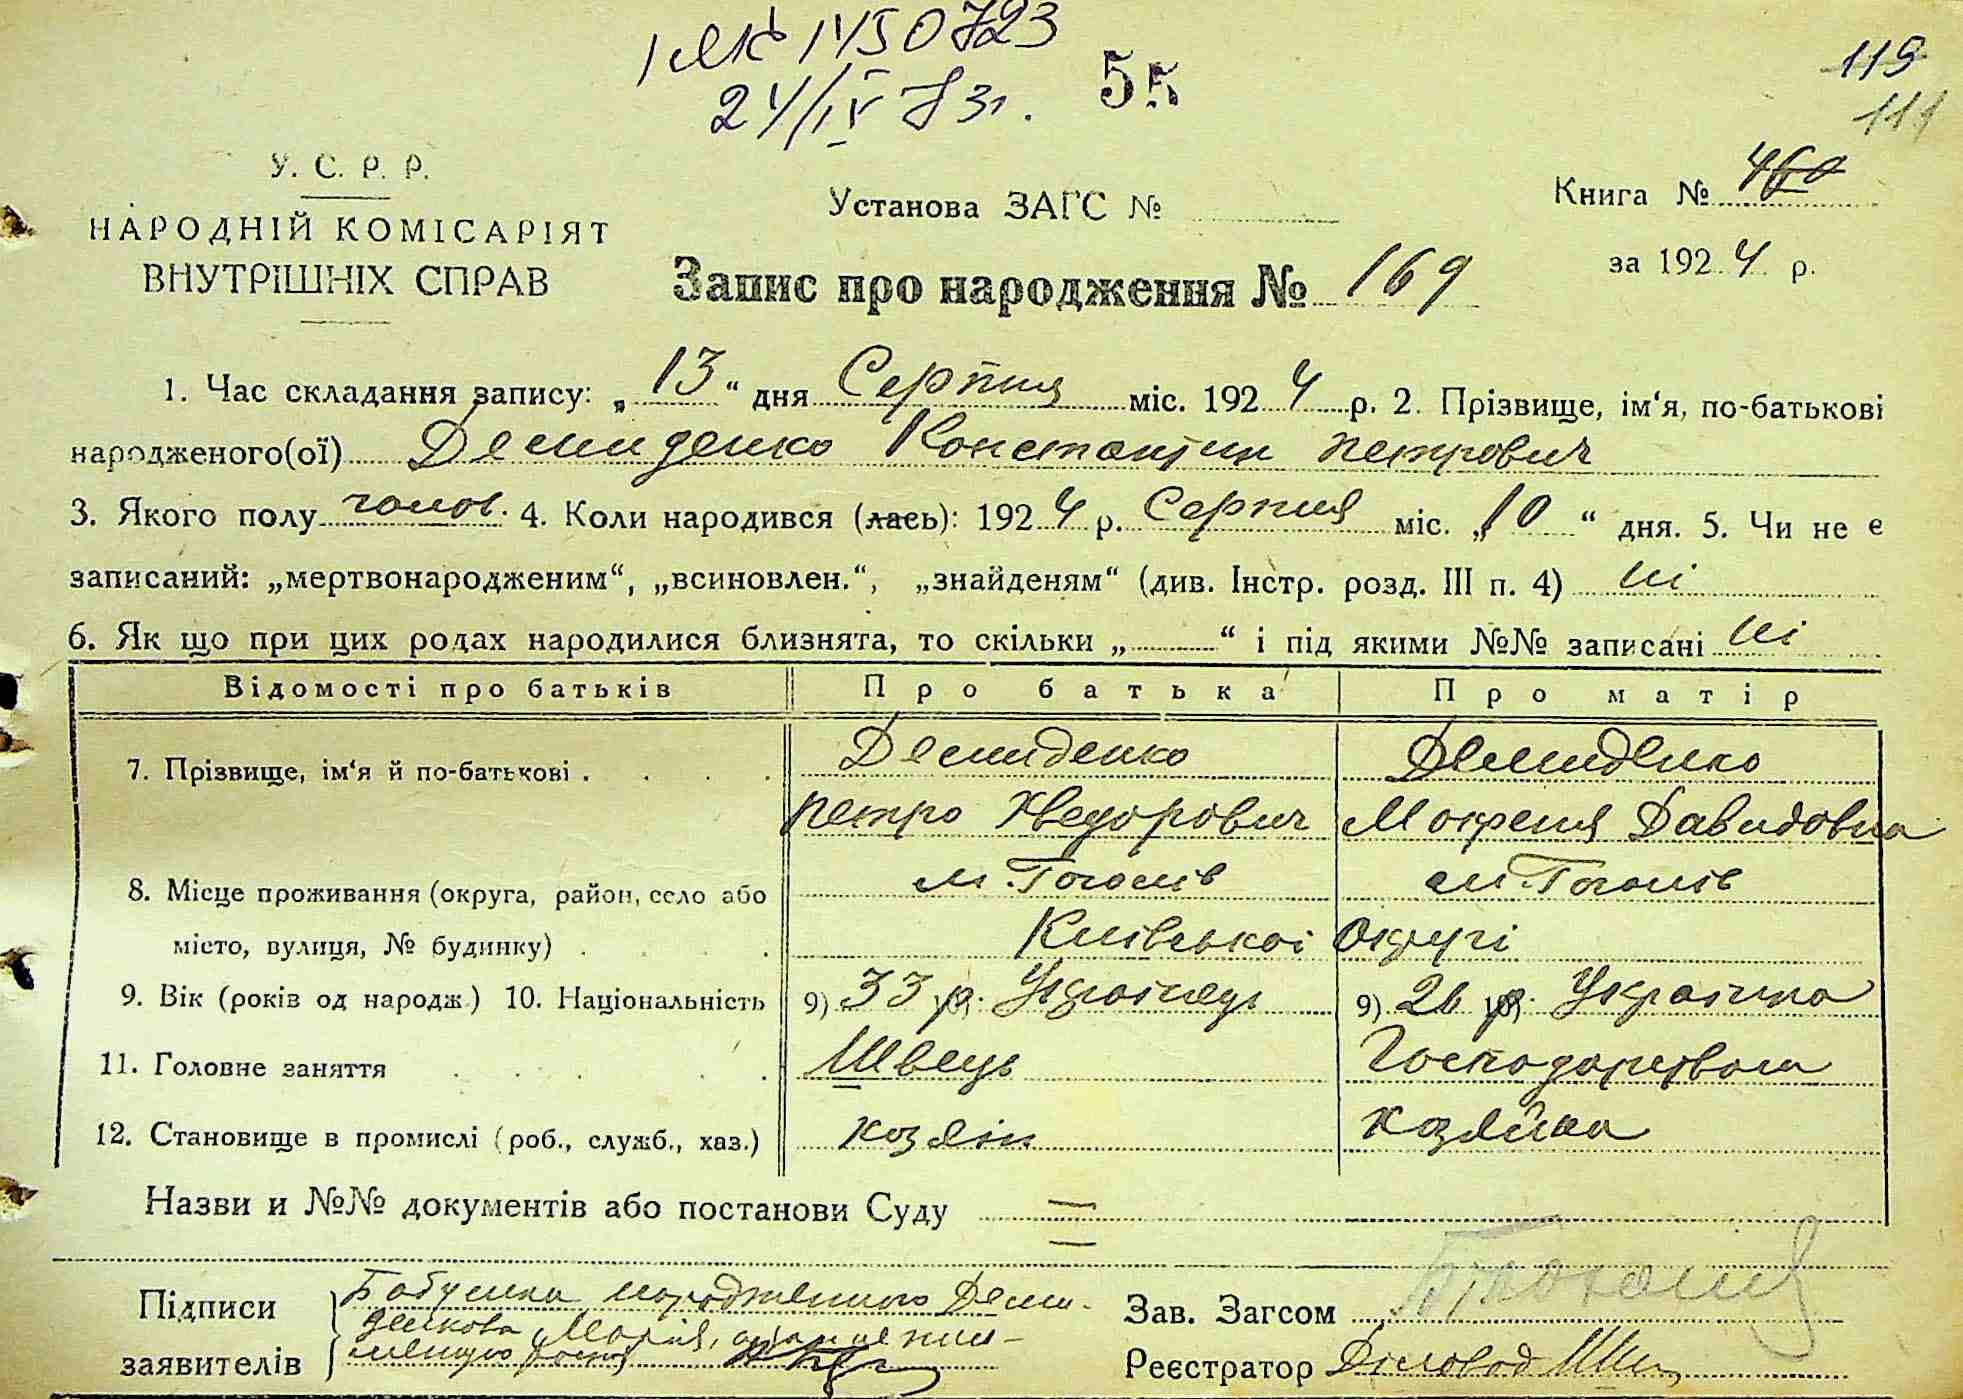 ІЯК 1450723
24/IV 73г.
55
119
111
У. С. Р. Р.
НАРОДНІЙ КОМІСАРІЯТ
ВНУТРІШНІХ СПРАВ
Установа ЗАГС №
Книга № 460
за 1924 р.
Запис про народження № 169
1. Час складання запису: „13“ дня Серпня міс. 1924 р. 2. Прізвище, ім‘я, по-батькові
народженого(ої) Демиденко Константин Петрович
3. Якого полу голов. 4. Коли народився (лась): 1924 р. Серпня міс. „10“ дня. 5. Чи не є
записаний: „мертвонародженим“, „всиновлен.“, „знайденям“ (див. Інстр. розд. III п. 4) ні
6. Як що при цих родах народилися близнята, то скільки „ “ і під якими №№ записані ні
Відомості про батьків Про батька Про матір
7. Прізвище, ім‘я й по-батькові . . . . Демиденко Демиденко
Петро Хведорович Мокреня Давидовна
8. Місце проживання (округа, район, село або м. Гоголів м. Гоголів
місто, вулиця, № будинку) . . . Київської Округі
9. Вік (років од народж.) 10. Національність 9) 33 р. Українець 9) 26 р. Українка
11. Головне заняття . . . . . Швець Господарством
12. Становище в промислі (роб., служб., хаз.) хозяін хозяйка
Назви и №№ документів або постанови Суду =
Підписи
заявителів
Бабушка народженного Деми-
денкова Марія,
Зав. Загсом
Реєстратор Діловод